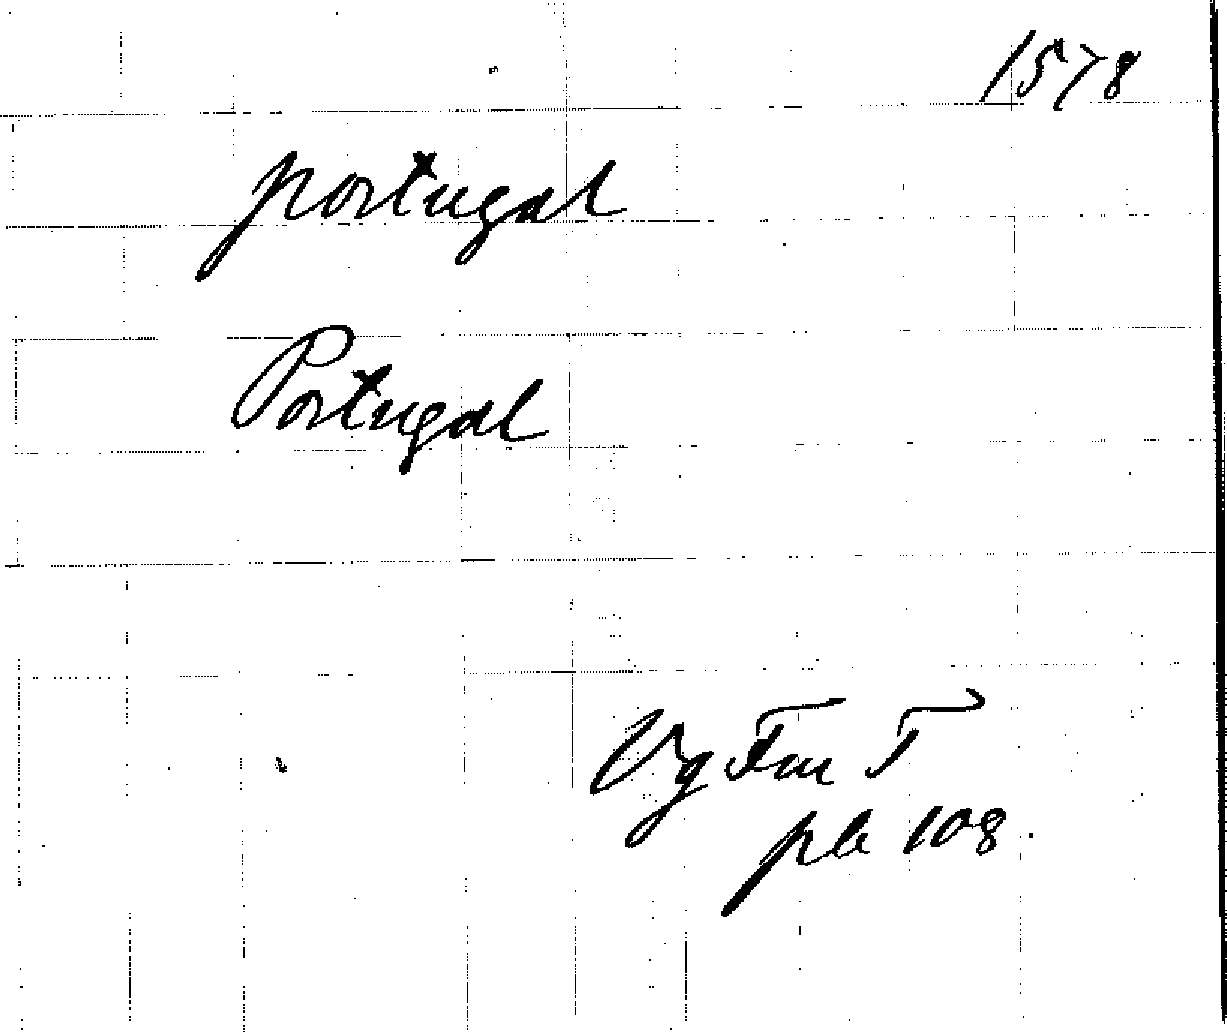 1578
portugal
Portugal
Vg Fm T
ple 108